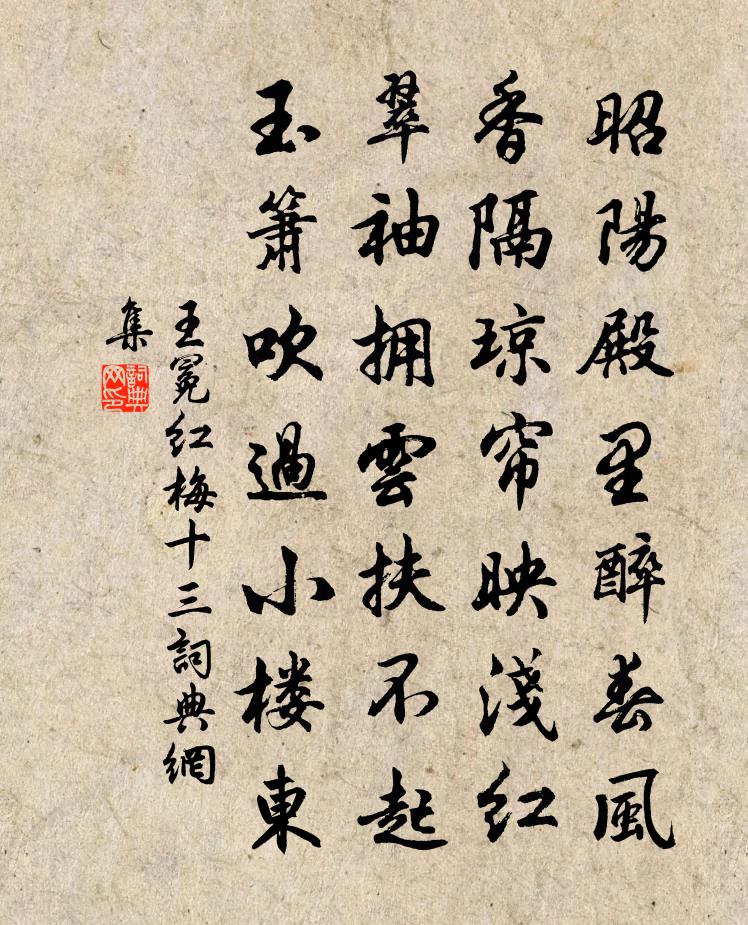 昭陽殿里醉春風
香隔琼帘映淺红
翠袖拥雲扶不起
玉簫吹過小楼東
王冕红梅十三詞典網
集
詞典网印